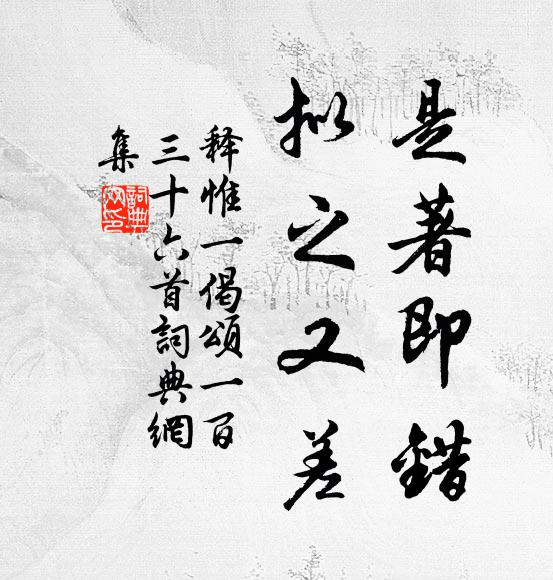 是著即錯
拟之又差
释惟一偈頌一百
三十六首詞典網
集
詞典网印